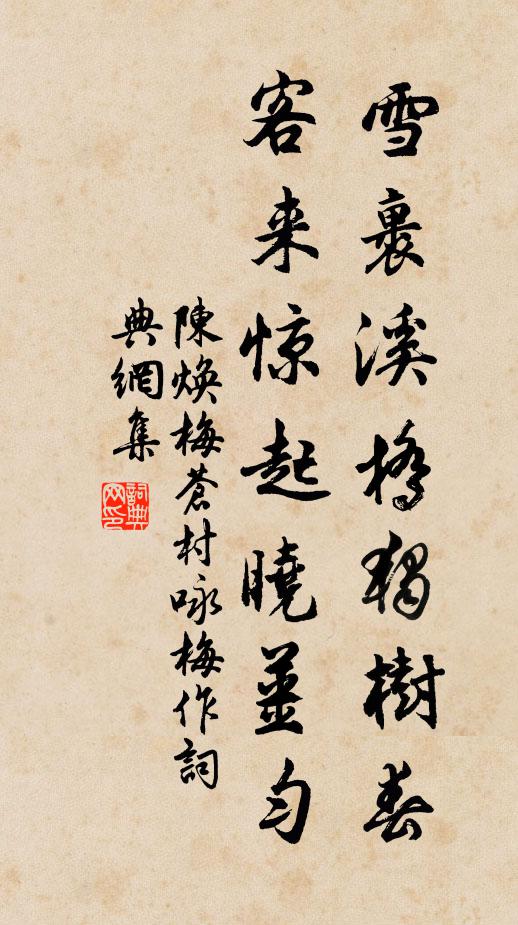 雪裹溪橋獨樹春
客来惊起曉薑匀
陳焕梅蒼村咏梅作詞
典網集
詞典网印